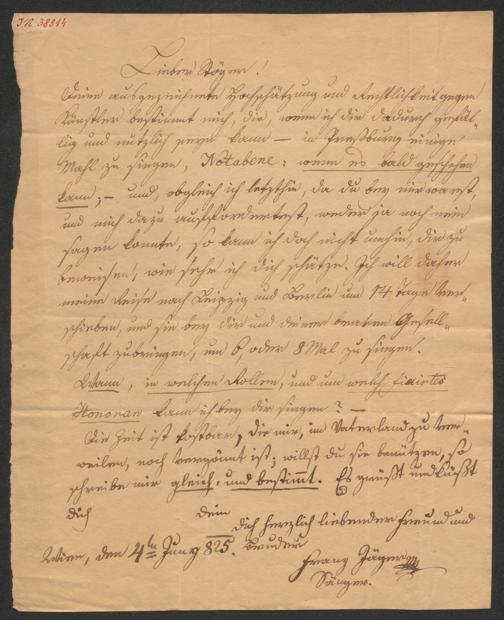 I.N. 38814
Lieber Stöger!
Deine ausgezeichnete Hochschätzung und Rechtlichkeit gegen
Künstler bestimmt mich, dir, wenn ich dir dadurch gefäl-
lig und nützlich seyn kann — in Pressburg einige
Mahl zu singen, Notabene: wenn es bald geschehen
kann; — und, obgleich ich letzthin, da du bey mir warest,
und mich dazu auffordertest, weder ja noch nein
sagen konnte, so kann ich doch nicht umhin, dir zu
beweisen, wie sehr ich dich schätze. Ich will daher
meine Reise nach Leipzig und Berlin um 14 Tage ver-
schieben, und sie bey dir und deiner Gesell-
schaft zubringen, um 6 oder 8 Mal zu singen.
Wann, in welchen Rollen, und um welch fixirtes
Honorar kann ich bey dir singen? —
Die Zeit ist kostbar, die mir, im Vaterland zu ver-
weilen, noch vergönnt ist; willst du sie benützen, so
schreibe mir gleich, und bestimmt. Es grüsst und küsst
dich dein
dich herzlich liebender Freund und
Bruder
Wien, den 4ten Juny 825.
Franz Jäger
Sänger.